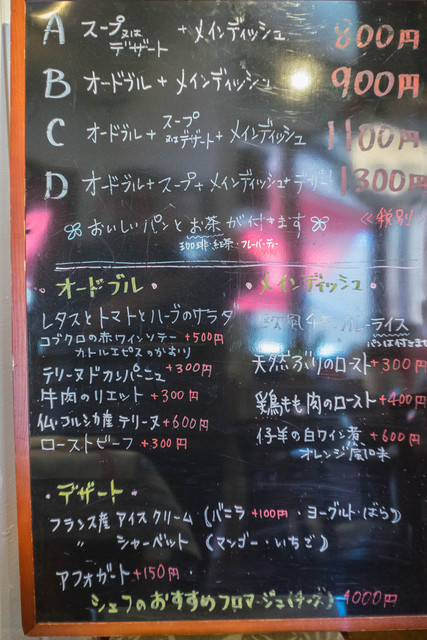 A スープ又はデザート + メインディッシュ 800円
B オードブル + メインディッシュ 900円
C オードブル + スープ又はデザート + メインディッシュ 1100円
D オードブル + スープ + メインディッシュ + デザート 1300円
おいしいパンとお茶が付きます ≪税別
珈琲・紅茶・フレーバーティー
・オードブル・
レタスとトマトとハーブのサラダ
コブクロの赤ワインソテー +500円
カトルエピスのかおり
テリーヌドカンパーニュ +300円
牛肉のリエット +300円
仏・コルシカ産テリーヌ +600円
ローストビーフ +300円
・メインディッシュ・
欧風 カレーライス
パンは付きませ
天然ぶりのロースト +300円
鶏もも肉のロースト +400円
仔羊の白ワイン煮 +600円
オレンジ風
・デザート・
フランス産アイスクリーム (バニラ +100円・ヨーグルト・ばら)
〃 シャーベット (マンゴー・いちご)
アフォガート +150円・
シェフのおすすめフロマージュ(チーズ) 1000円